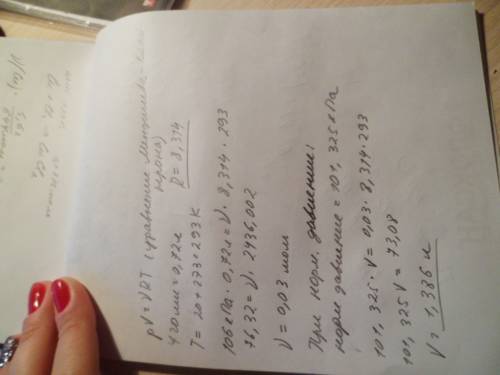 pV = νRT (уравнение Менделеева-Клапейрона)
R = 8,314
720 мл = 0,72 л
T = 20 + 273 = 293 К
106 кПа · 0,72 л = ν · 8,314 · 293
76,32 = ν · 2436,002
ν = 0,03 моль
При норм. давлении:
норм. давление = 101,325 кПа
101,325 · V = 0,03 · 8,314 · 293
101,325 V = 73,08
V = 1,386 л